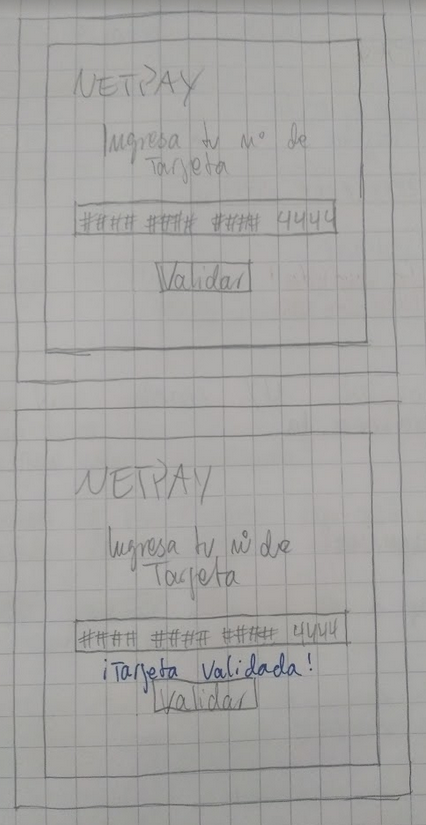 NETPAY
Ingresa tu n° de
Tarjeta
#### #### #### 4444
Validar
NETPAY
Ingresa tu n° de
Tarjeta
#### #### #### 4444
¡Tarjeta validada!
Validar